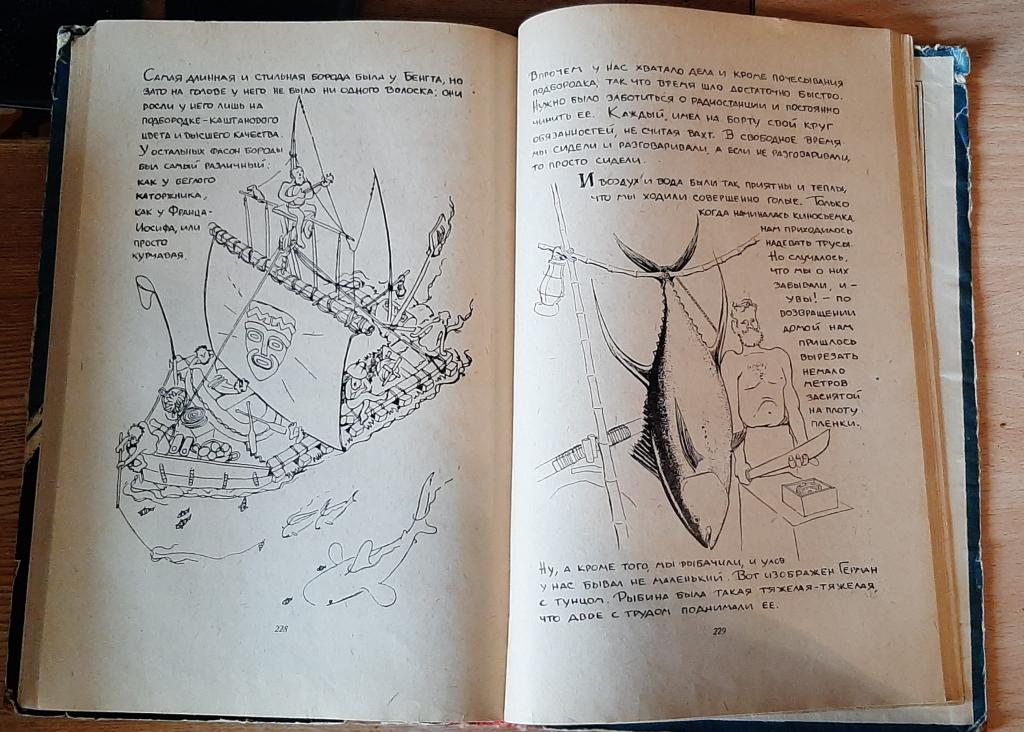 Самая длинная и стильная борода была у Бенгта, но
зато на голове у него не было ни одного волоска: они
росли у него лишь на
подбородке-каштанового
цвета и высшего качества.
У остальных фасон бороды
был самый различный:
как у беглого
каторжника,
как у Франца-
Иосифа, или
просто
курчавая.
228
Впрочем у нас хватало дела и кроме почесывания
подбородка, так что время шло достаточно быстро.
Нужно было заботиться о радиостанции и постоянно
чинить ее. Каждый, имел на борту свой круг
обязанностей, не считая вахт. В свободное время
мы сидели и разговаривали, а если не разговаривали,
то просто сидели.
И воздух и вода были так приятны и теплы,
что мы ходили совершенно голые. Только
когда начиналась киносъемка,
нам приходилось
надевать трусы.
Но случалось,
что мы о них
забывали, и -
увы! - по
возвращении
домой нам
пришлось
вырезать
немало
метров
заснятой
на плоту
пленки.
Ну, а кроме того, мы рыбачили, и улов
у нас бывал не маленький. Вот изображен Герман
с тунцом. Рыбина была такая тяжелая-тяжелая,
что двое с трудом поднимали ее.
229